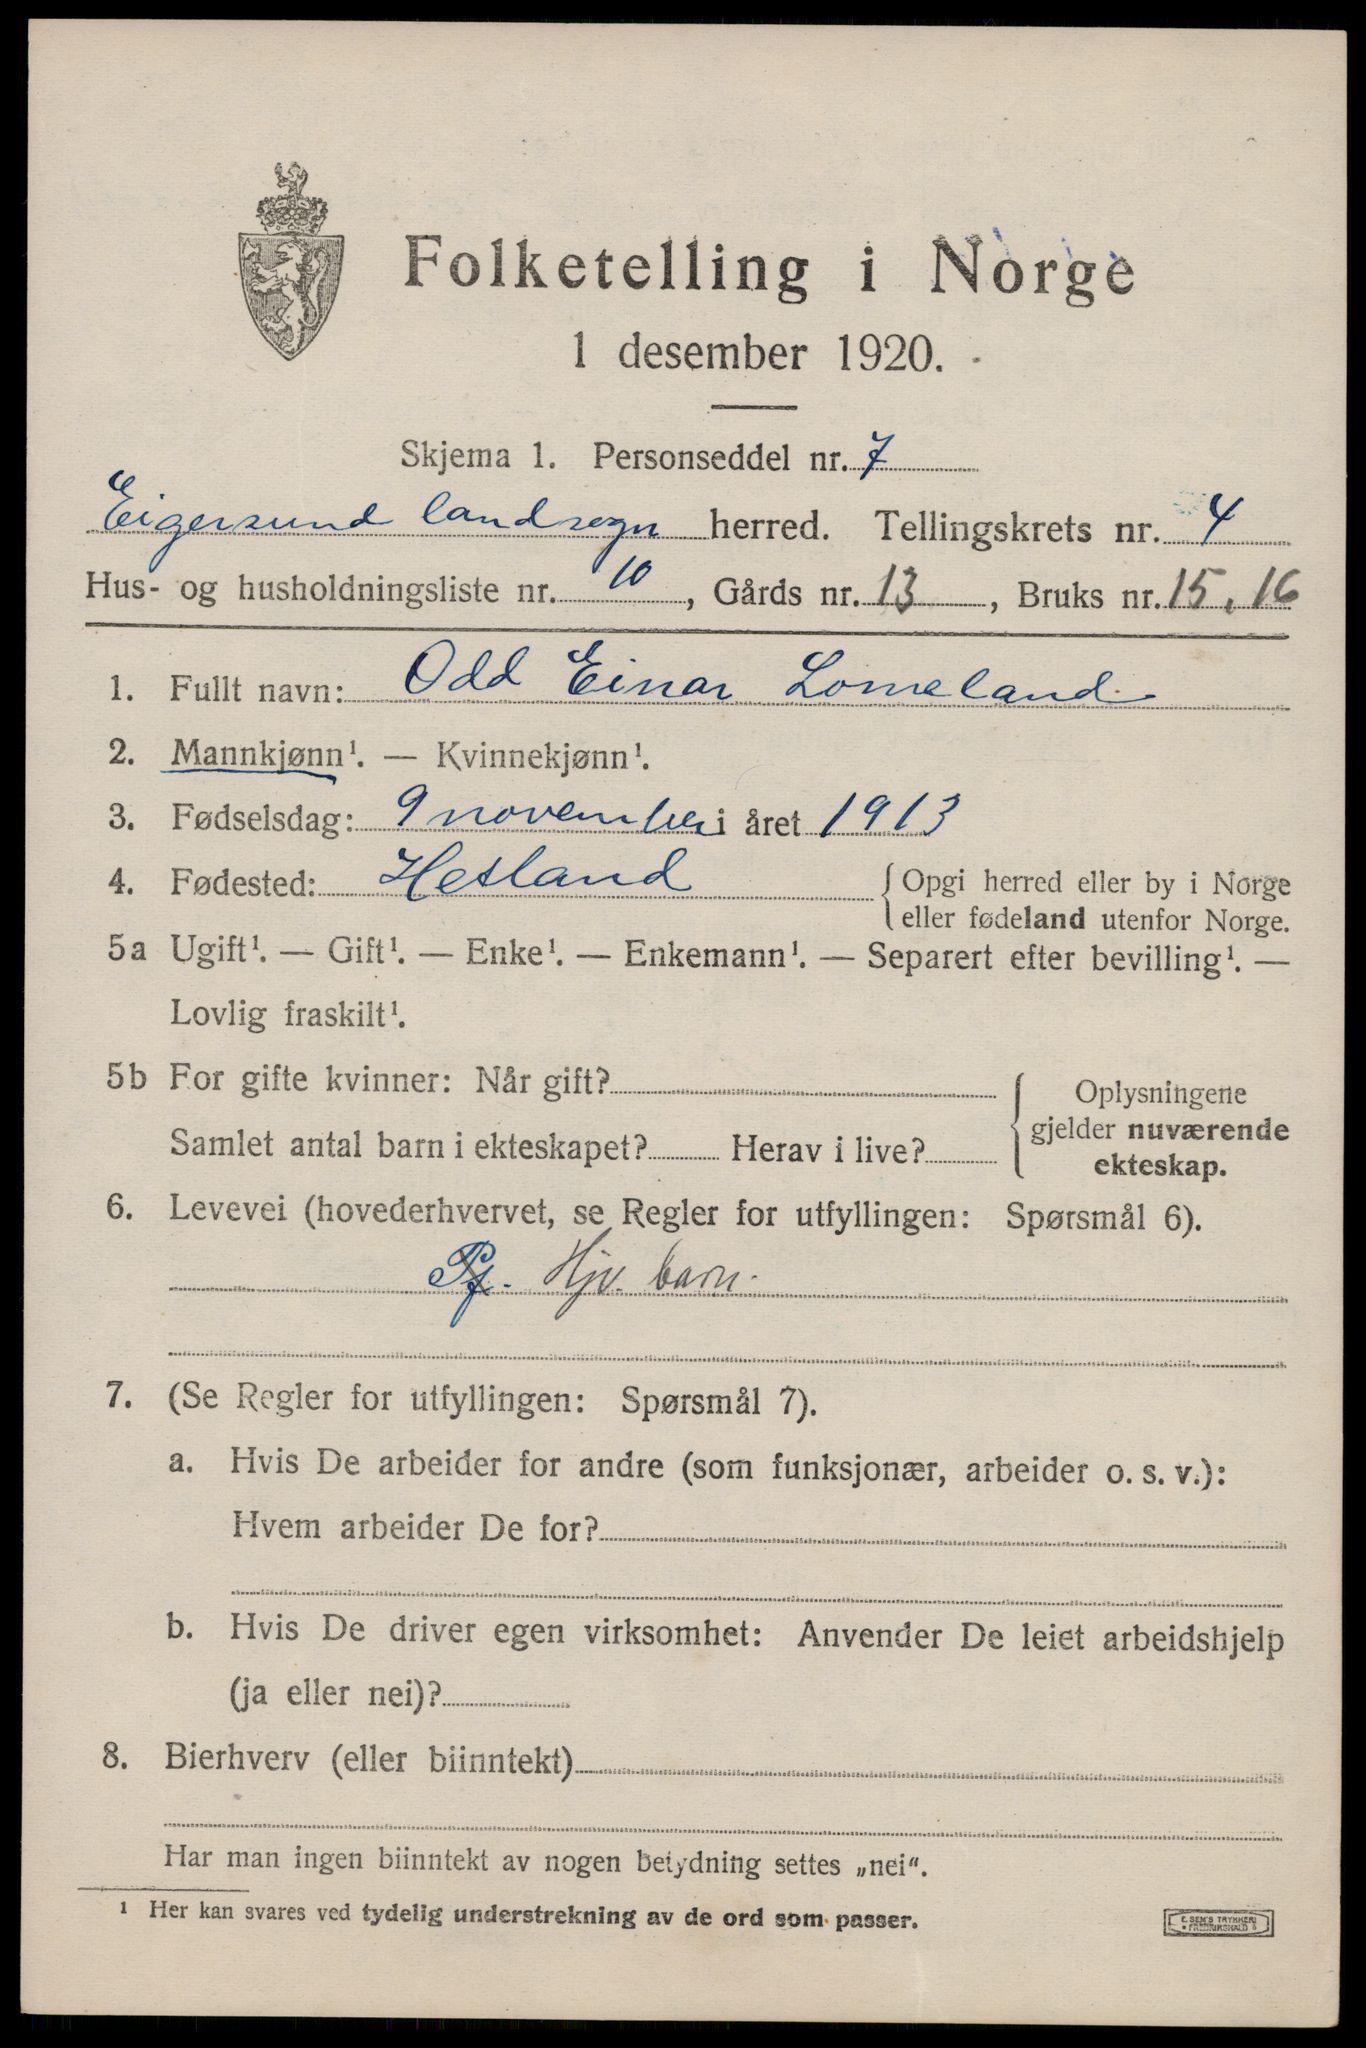 Folketelling i Norge
1 desember 1920.
Skjema 1. Personseddel nr. 7
Eigersund landsogn herred. Tellingskrets nr. 4
Hus- og husholdningsliste nr. 10, Gårds nr. 13, Bruks nr. 15, 16
1. Fullt navn: Odd Einar Lomeland
2. Mannkjønn¹. — Kvinnekjønn¹.
3. Fødselsdag: 9 november i året 1913
4. Fødested: Hetland { Opgi herred eller by i Norge
eller fødeland utenfor Norge.
5a Ugift¹. — Gift¹. — Enke¹. — Enkemann¹. — Separert efter bevilling¹. —
Lovlig fraskilt¹.
5b For gifte kvinner: Når gift? { Oplysningene
Samlet antal barn i ekteskapet? Herav i live? gjelder nuværende
ekteskap.
6. Levevei (hovederhvervet, se Regler for utfyllingen: Spørsmål 6).
Pf. Hjv. barn.
7. (Se Regler for utfyllingen: Spørsmål 7).
a. Hvis De arbeider for andre (som funksjonær, arbeider o. s. v.):
Hvem arbeider De for?
b. Hvis De driver egen virksomhet: Anvender De leiet arbeidshjelp
(ja eller nei)?
8. Bierhverv (eller biinntekt)
Har man ingen biinntekt av nogen betydning settes „nei“.
¹ Her kan svares ved tydelig understrekning av de ord som passer.
E. SEM'S TRYKKERI
FREDRIKSHALD